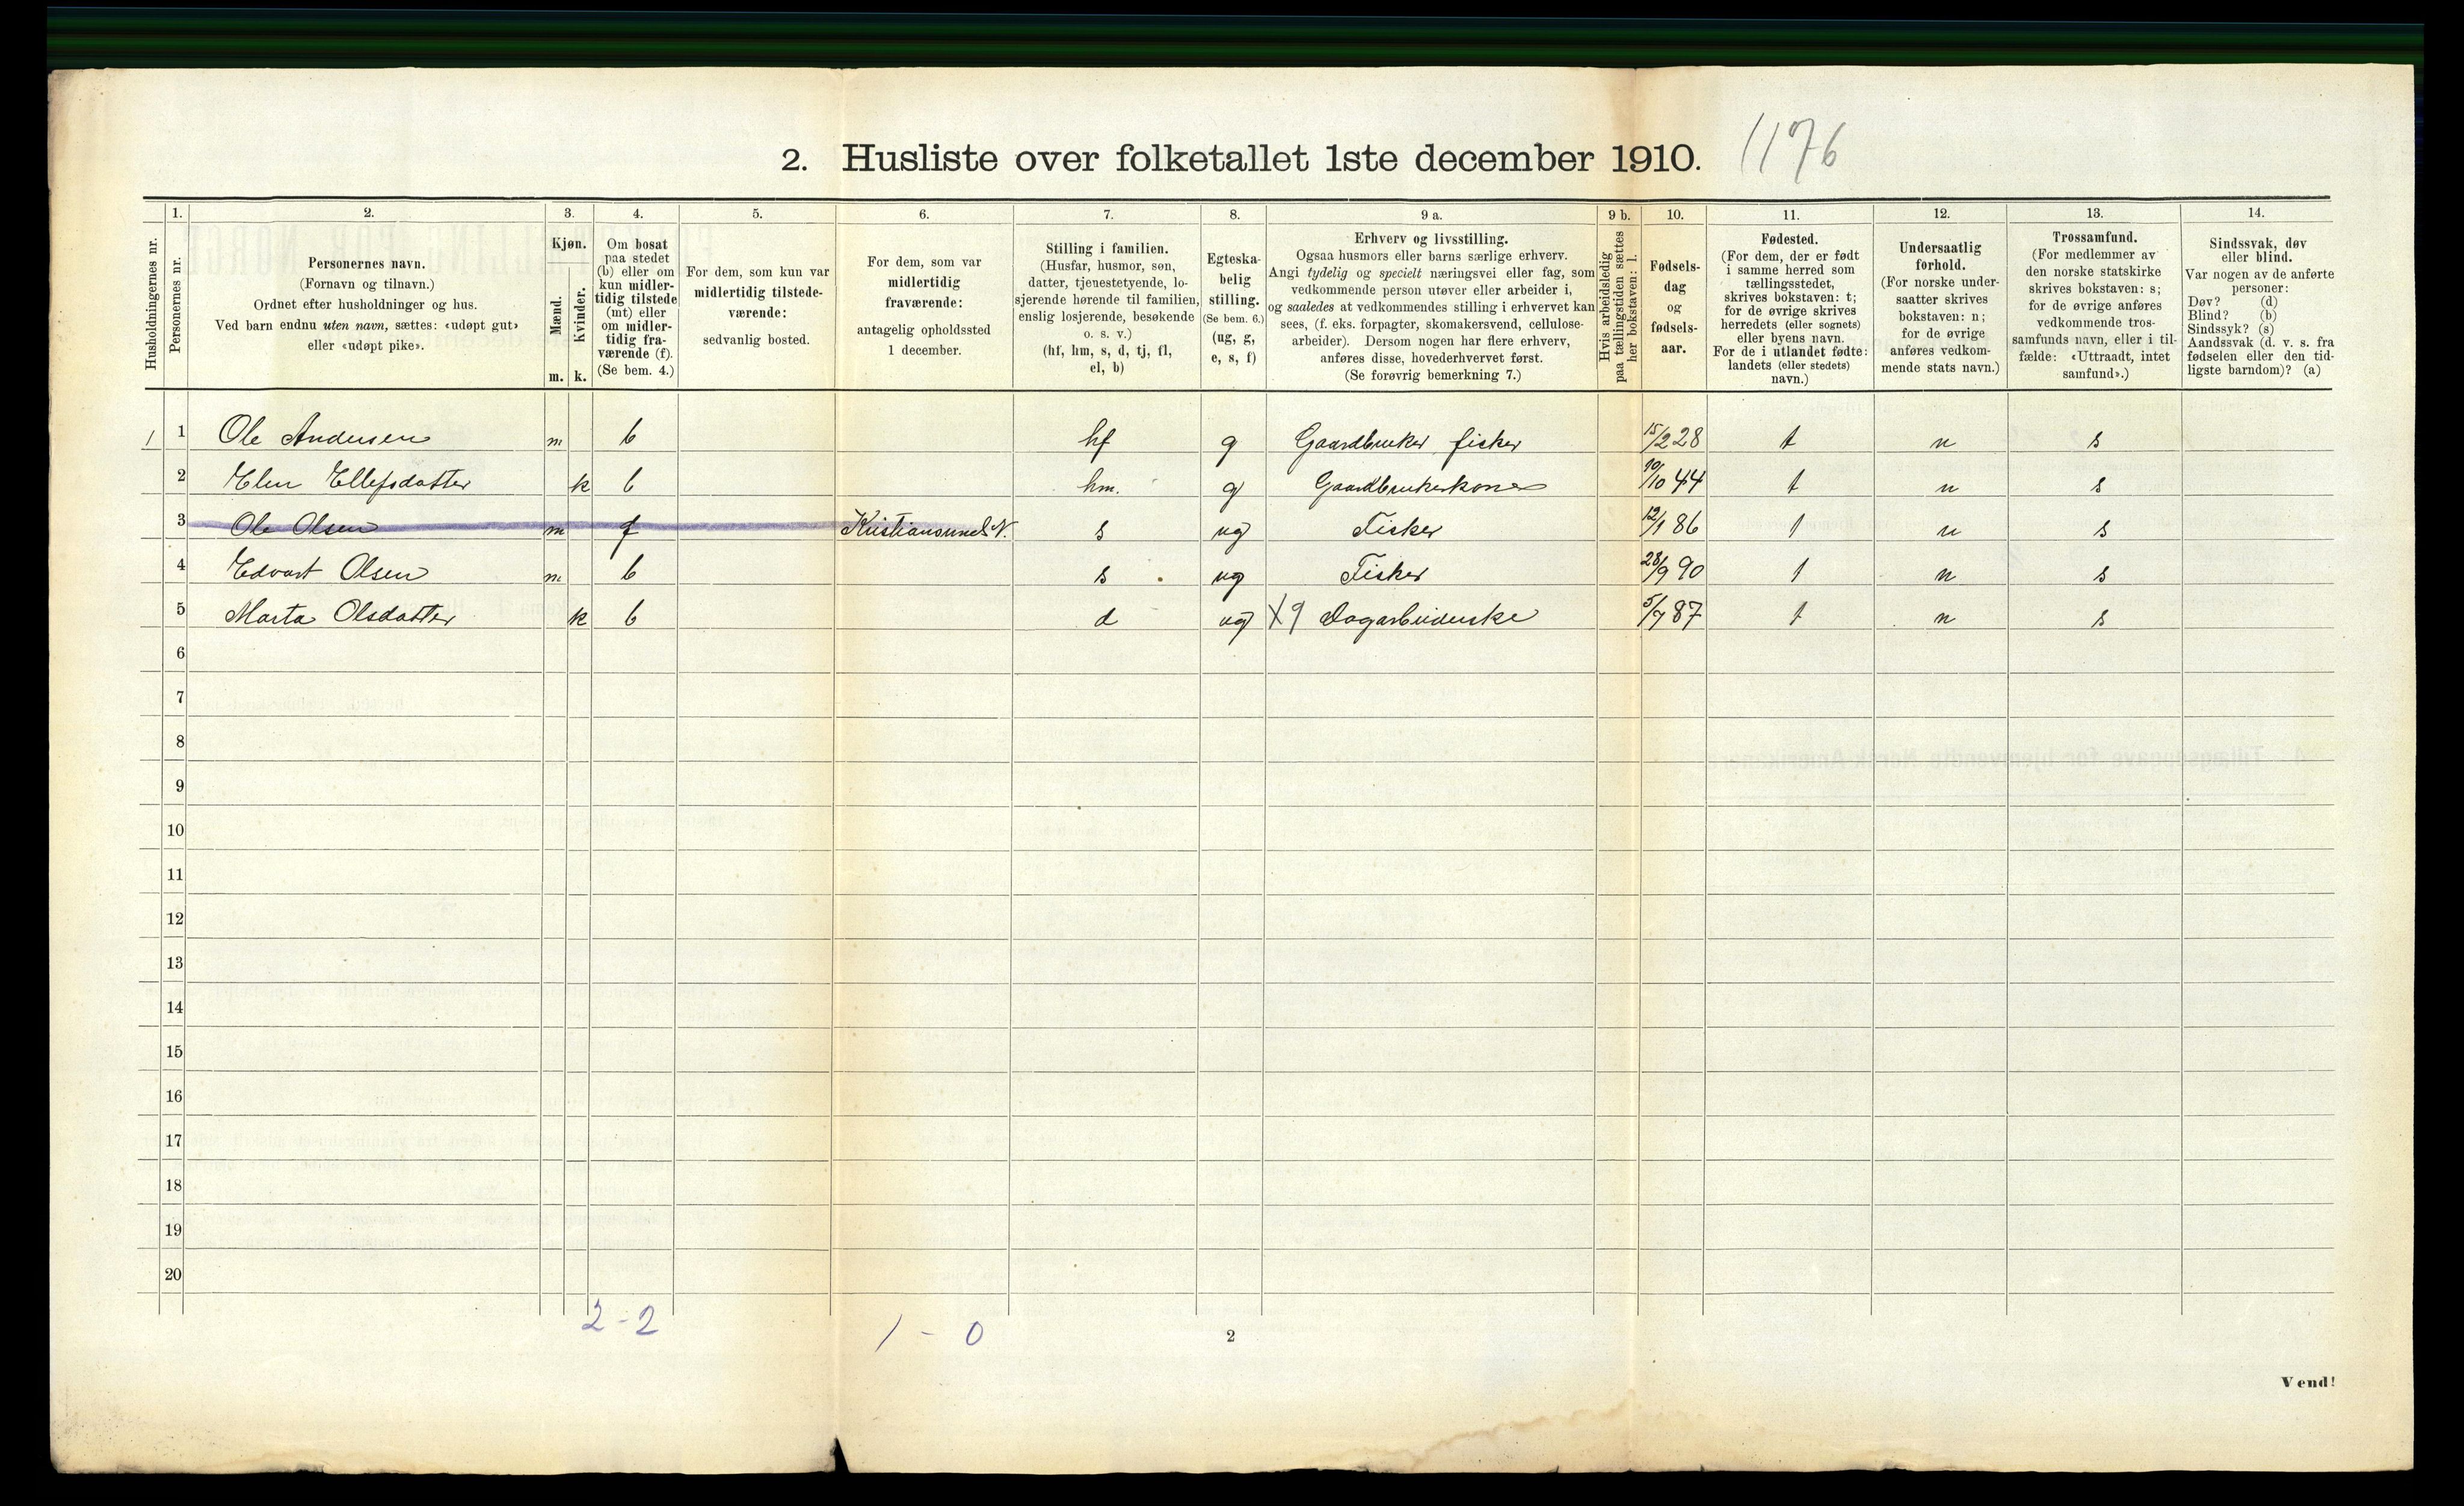 2. Husliste over folketallet 1ste december 1910. 1176
1. 2. 3. 4. 5. 6. 7. 8. 9 a. 9 b. 10. 11. 12. 13. 14.
Husholdningernes nr.
Personernes nr.
Personernes navn.
(Fornavn og tilnavn.)
Ordnet efter husholdninger og hus.
Ved barn endnu uten navn, sættes: «udøpt gut»
eller «udøpt pike».
Kjøn.
Mænd.
Kvinder.
m. k.
Om bosat
paa stedet
(b) eller om
kun midler-
tidig tilstede
(mt) eller
om midler-
tidig fra-
værende (f).
(Se bem. 4.)
For dem, som kun var
midlertidig tilstede-
værende:
sedvanlig bosted.
For dem, som var
midlertidig
fraværende:
antagelig opholdssted
1 december.
Stilling i familien.
(Husfar, husmor, søn,
datter, tjenestetyende, lo-
sjerende hørende til familien,
enslig losjerende, besøkende
o. s. v.)
(hf, hm, s, d, tj, fl,
el, b)
Egteska-
belig
stilling.
(Se bem. 6.)
(ug, g,
e, s, f)
Erhverv og livsstilling.
Ogsaa husmors eller barns særlige erhverv.
Angi tydelig og specielt næringsvei eller fag, som
vedkommende person utøver eller arbeider i,
og saaledes at vedkommendes stilling i erhvervet kan
sees, (f. eks. forpagter, skomakersvend, cellulose-
arbeider). Dersom nogen har flere erhverv,
anføres disse, hovederhvervet først.
(Se forøvrig bemerkning 7.)
Hvis arbeidsledig
paa tællingstiden sættes
her bokstaven: l.
Fødsels-
dag
og
fødsels-
aar.
Fødested.
(For dem, der er født
i samme herred som
tællingsstedet,
skrives bokstaven: t;
for de øvrige skrives
herredets (eller sognets)
eller byens navn.
For de i utlandet fødte:
landets (eller stedets)
navn.)
Undersaatlig
forhold.
(For norske under-
saatter skrives
bokstaven: n;
for de øvrige
anføres vedkom-
mende stats navn.)
Trossamfund.
(For medlemmer av
den norske statskirke
skrives bokstaven: s;
for de øvrige anføres
vedkommende tros-
samfunds navn, eller i til-
fælde: «Uttraadt, intet
samfund».)
Sindssvak, døv
eller blind.
Var nogen av de anførte
personer:
Døv? (d)
Blind? (b)
Sindssyk? (s)
Aandssvak (d. v. s. fra
fødselen eller den tid-
ligste barndom)? (a)
1 1 Ole Andersen m b hf g Gaardbruker fisker 15/2 28 t n s
2 Elen Ellefsdatter k b hm. g Gaardbrukerkone 10/10 44 t n s
3 Ole Olsen m f Kristiansund N. s ug Fisker 12/1 86 t n s
4 Edvart Olsen m b s ug Fisker 28/9 90 t n s
5 Marta Olsdatter k b d ug X9 Dagarbeiderske 5/7 87 t n s
6
7
8
9
10
11
12
13
14
15
16
17
18
19
20
2-2 1-0
2
Vend!